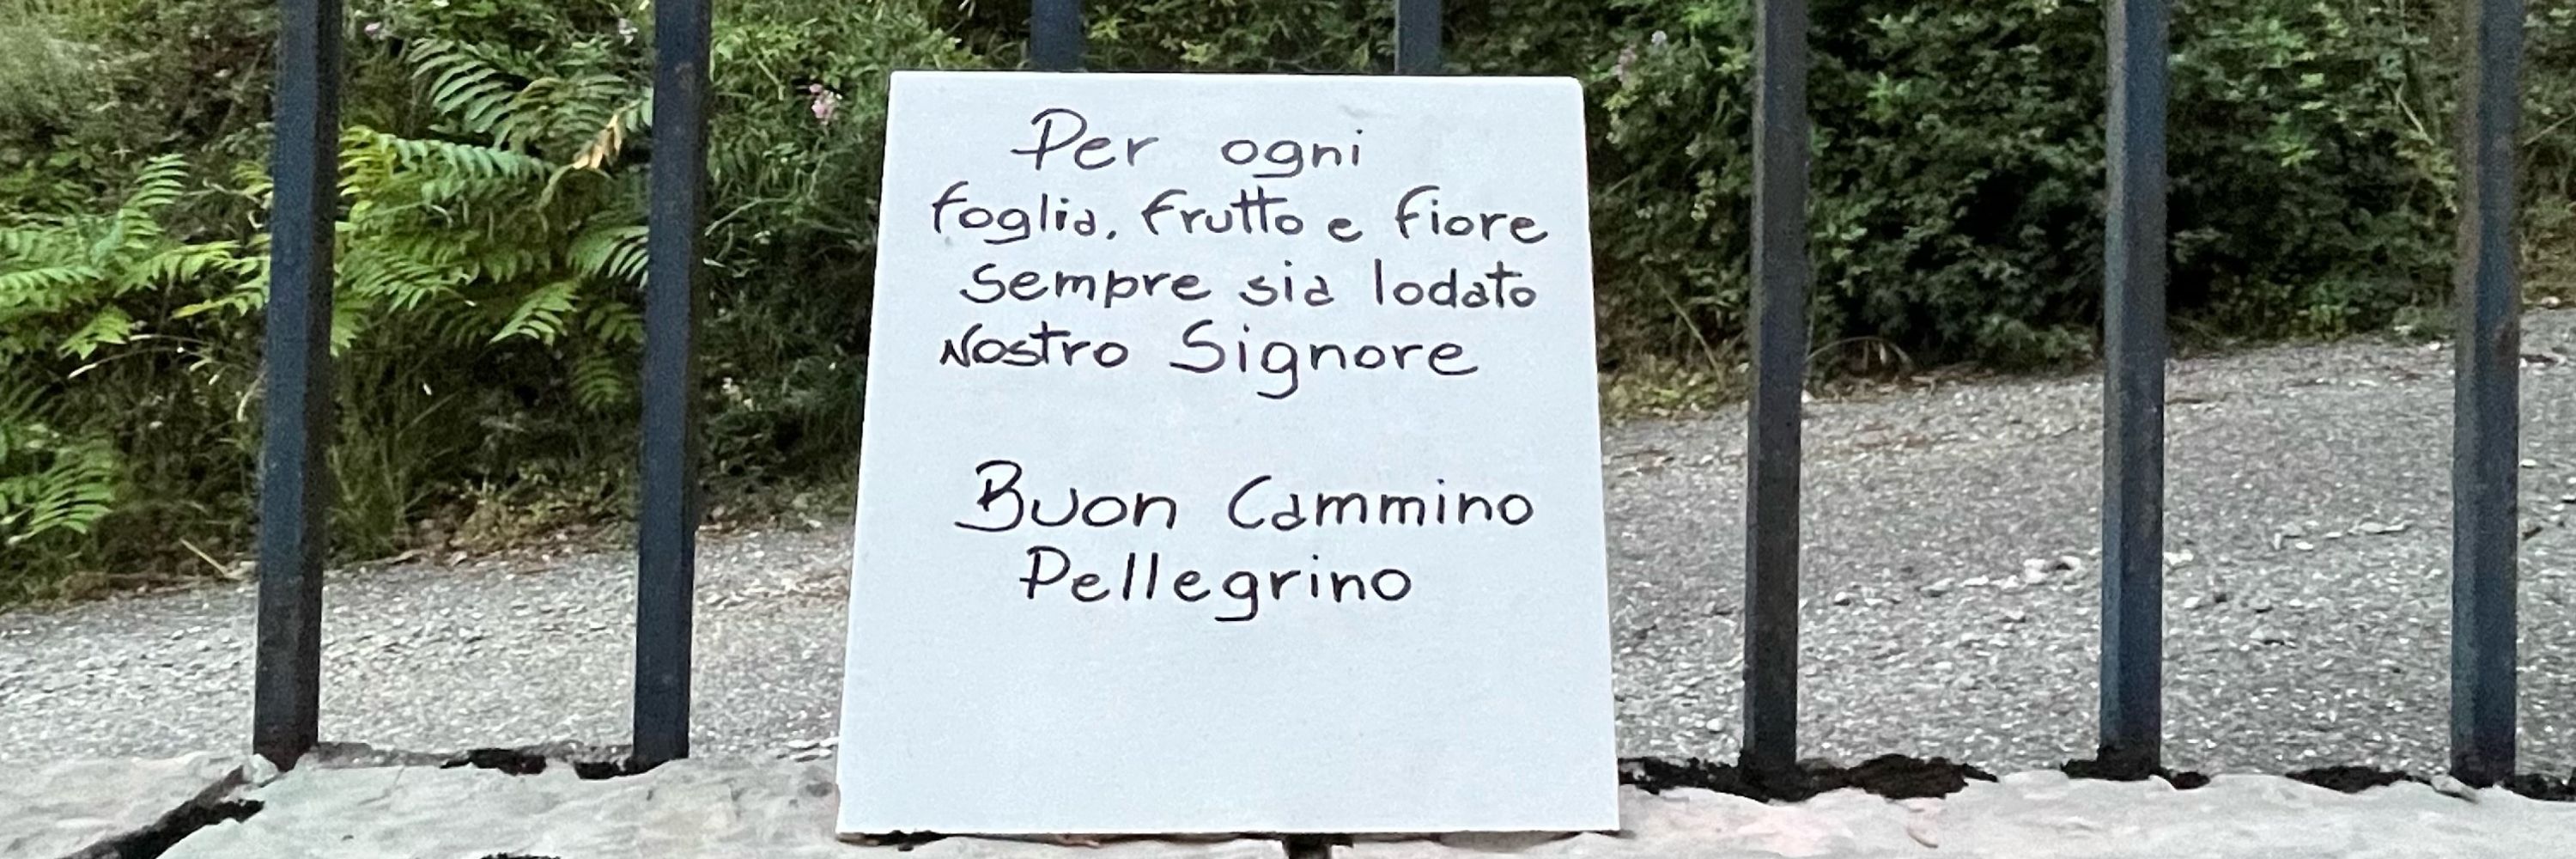 Per ogni
foglia, frutto e fiore
sempre sia lodato
Nostro Signore
Buon Cammino
Pellegrino